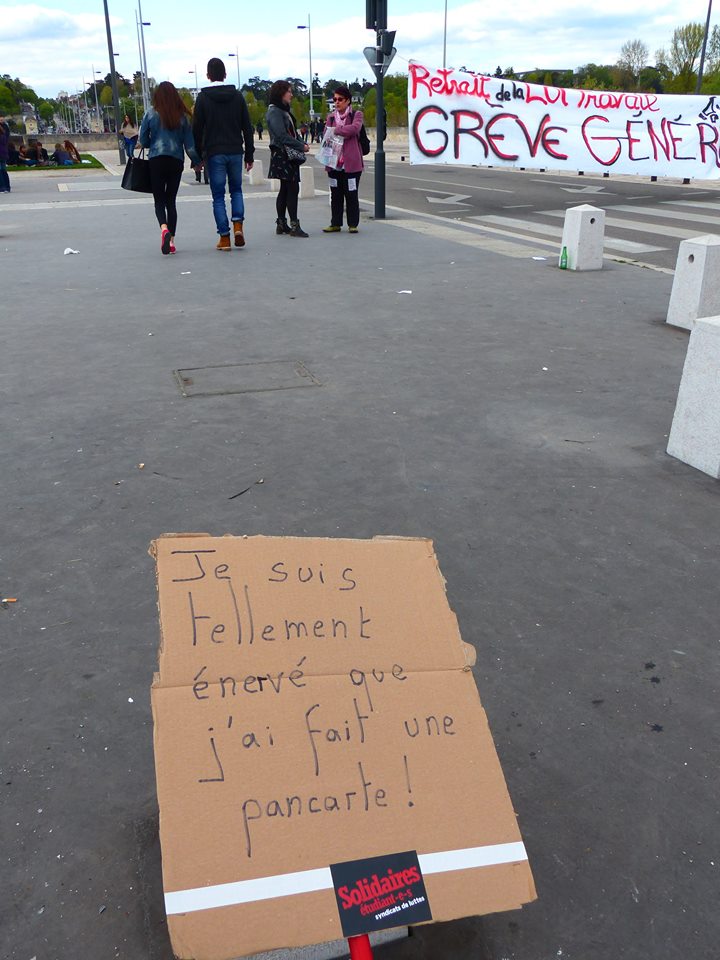 Retrait de la Loi Travail
GRÈVE GÉNÉR
Je suis
tellement
énervé que
j'ai fait une
pancarte !
Solidaires
étudiant-e-s
syndicats de luttes